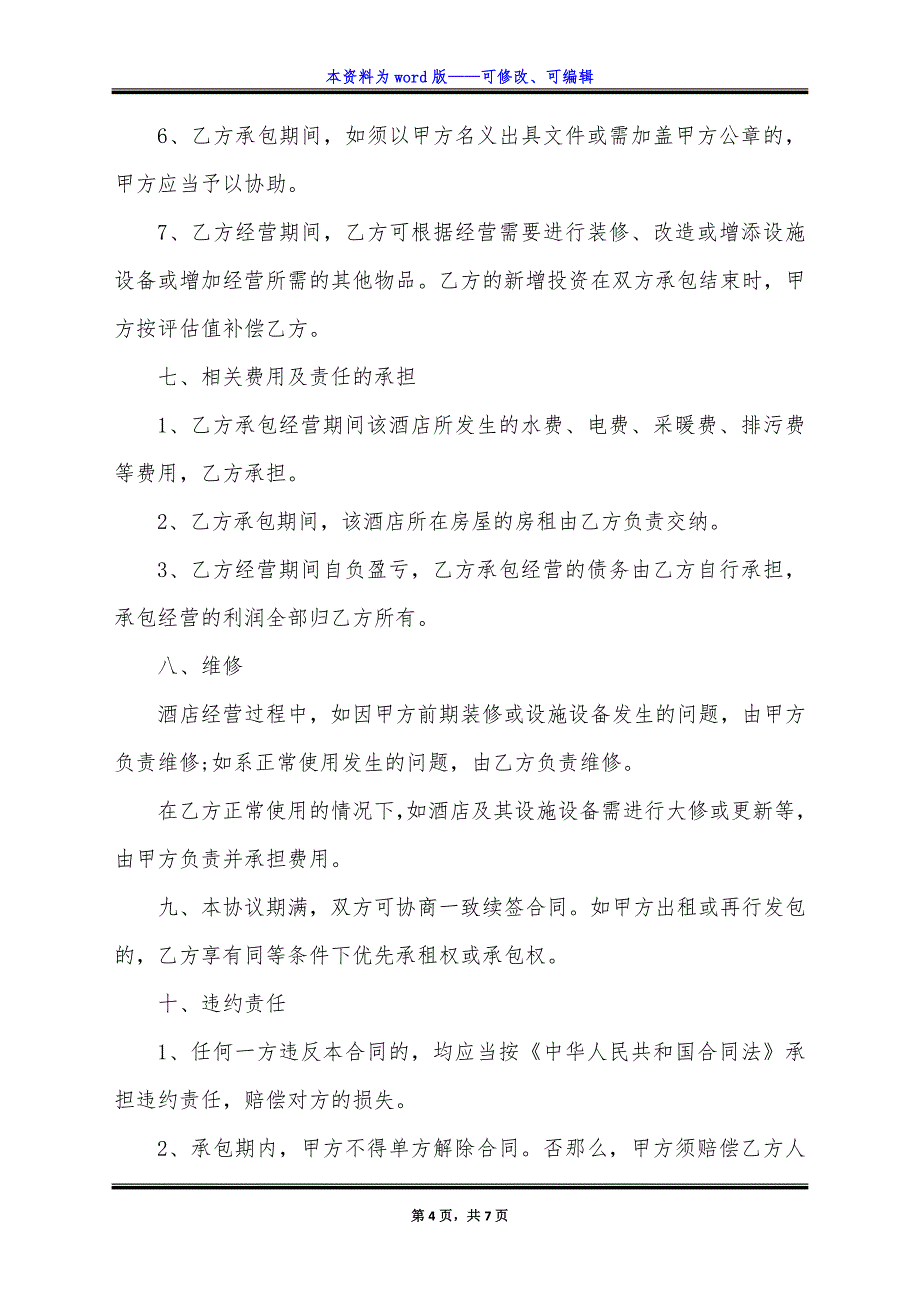 本资料为 word 版——可修改、可编辑
6、乙方承包期间，如须以甲方名义出具文件或需加盖甲方公章的，
甲方应当予以协助。
7、乙方经营期间，乙方可根据经营需要进行装修、改造或增添设施
设备或增加经营所需的其他物品。乙方的新增投资在双方承包结束时，甲
方按评估值补偿乙方。
七、相关费用及责任的承担
1、乙方承包经营期间该酒店所发生的水费、电费、采暖费、排污费
等费用，乙方承担。
2、乙方承包期间，该酒店所在房屋的房租由乙方负责交纳。
3、乙方经营期间自负盈亏，乙方承包经营的债务由乙方自行承担，
承包经营的利润全部归乙方所有。
八、维修
酒店经营过程中，如因甲方前期装修或设施设备发生的问题，由甲方
负责维修;如系正常使用发生的问题，由乙方负责维修。
在乙方正常使用的情况下，如酒店及其设施设备需进行大修或更新等，
由甲方负责并承担费用。
九、本协议期满，双方可协商一致续签合同。如甲方出租或再行发包
的，乙方享有同等条件下优先承租权或承包权。
十、违约责任
1、任何一方违反本合同的，均应当按《中华人民共和国合同法》承
担违约责任，赔偿对方的损失。
2、承包期内，甲方不得单方解除合同。否那么，甲方须赔偿乙方人
第 4 页，共 7 页